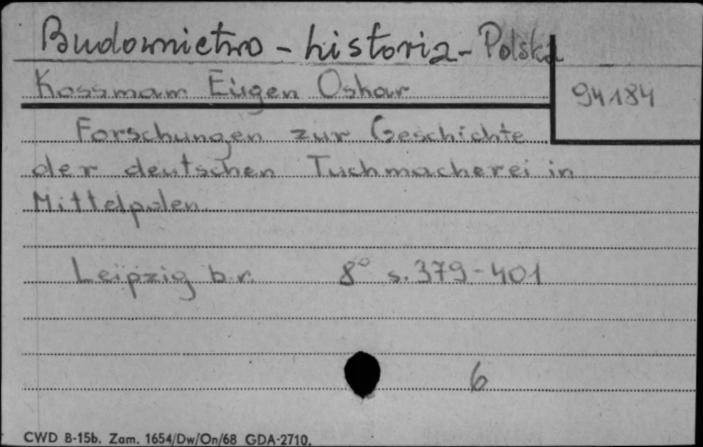 Budownictwo - historia - Polska
Kossmam Eugen Oskar
94184
Forschungen zur Geschichte
der deutschen Tuchmacherei in
Mittelpolen
Leipzig b.r. 8° s. 379-401
6
CWD B-15b. Zam. 1654/Dw/On/68 GDA-2710.